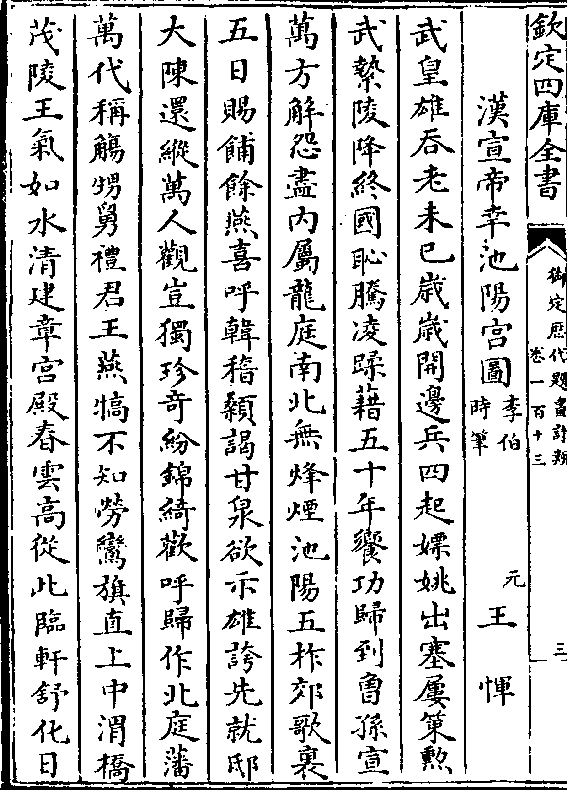 欽定四庫全書
御定歴代題畫詩類
卷一百十三
三
漢宣帝幸池陽宮圖
李伯
時筆
元
王惲
武皇雄吞老未已歲歲開邊兵四起嫖姚出塞屢策勲
武縶陵降終國恥騰凌蹂藉五十年饗功歸到曾孫宣
萬方解怨盡内屬龍庭南北無烽煙池陽五柞郊歌裏
五日賜餔餘燕喜呼韓稽顙謁甘泉欲示雄誇先就邸
大陳還縱萬人觀豈獨珍奇紛錦綺歡呼歸作北庭藩
萬代稱觴甥舅禮君王燕犒不知勞鸞旗直上中渭橋
茂陵王氣如水清建章宫殿春雲高從此臨軒舒化日